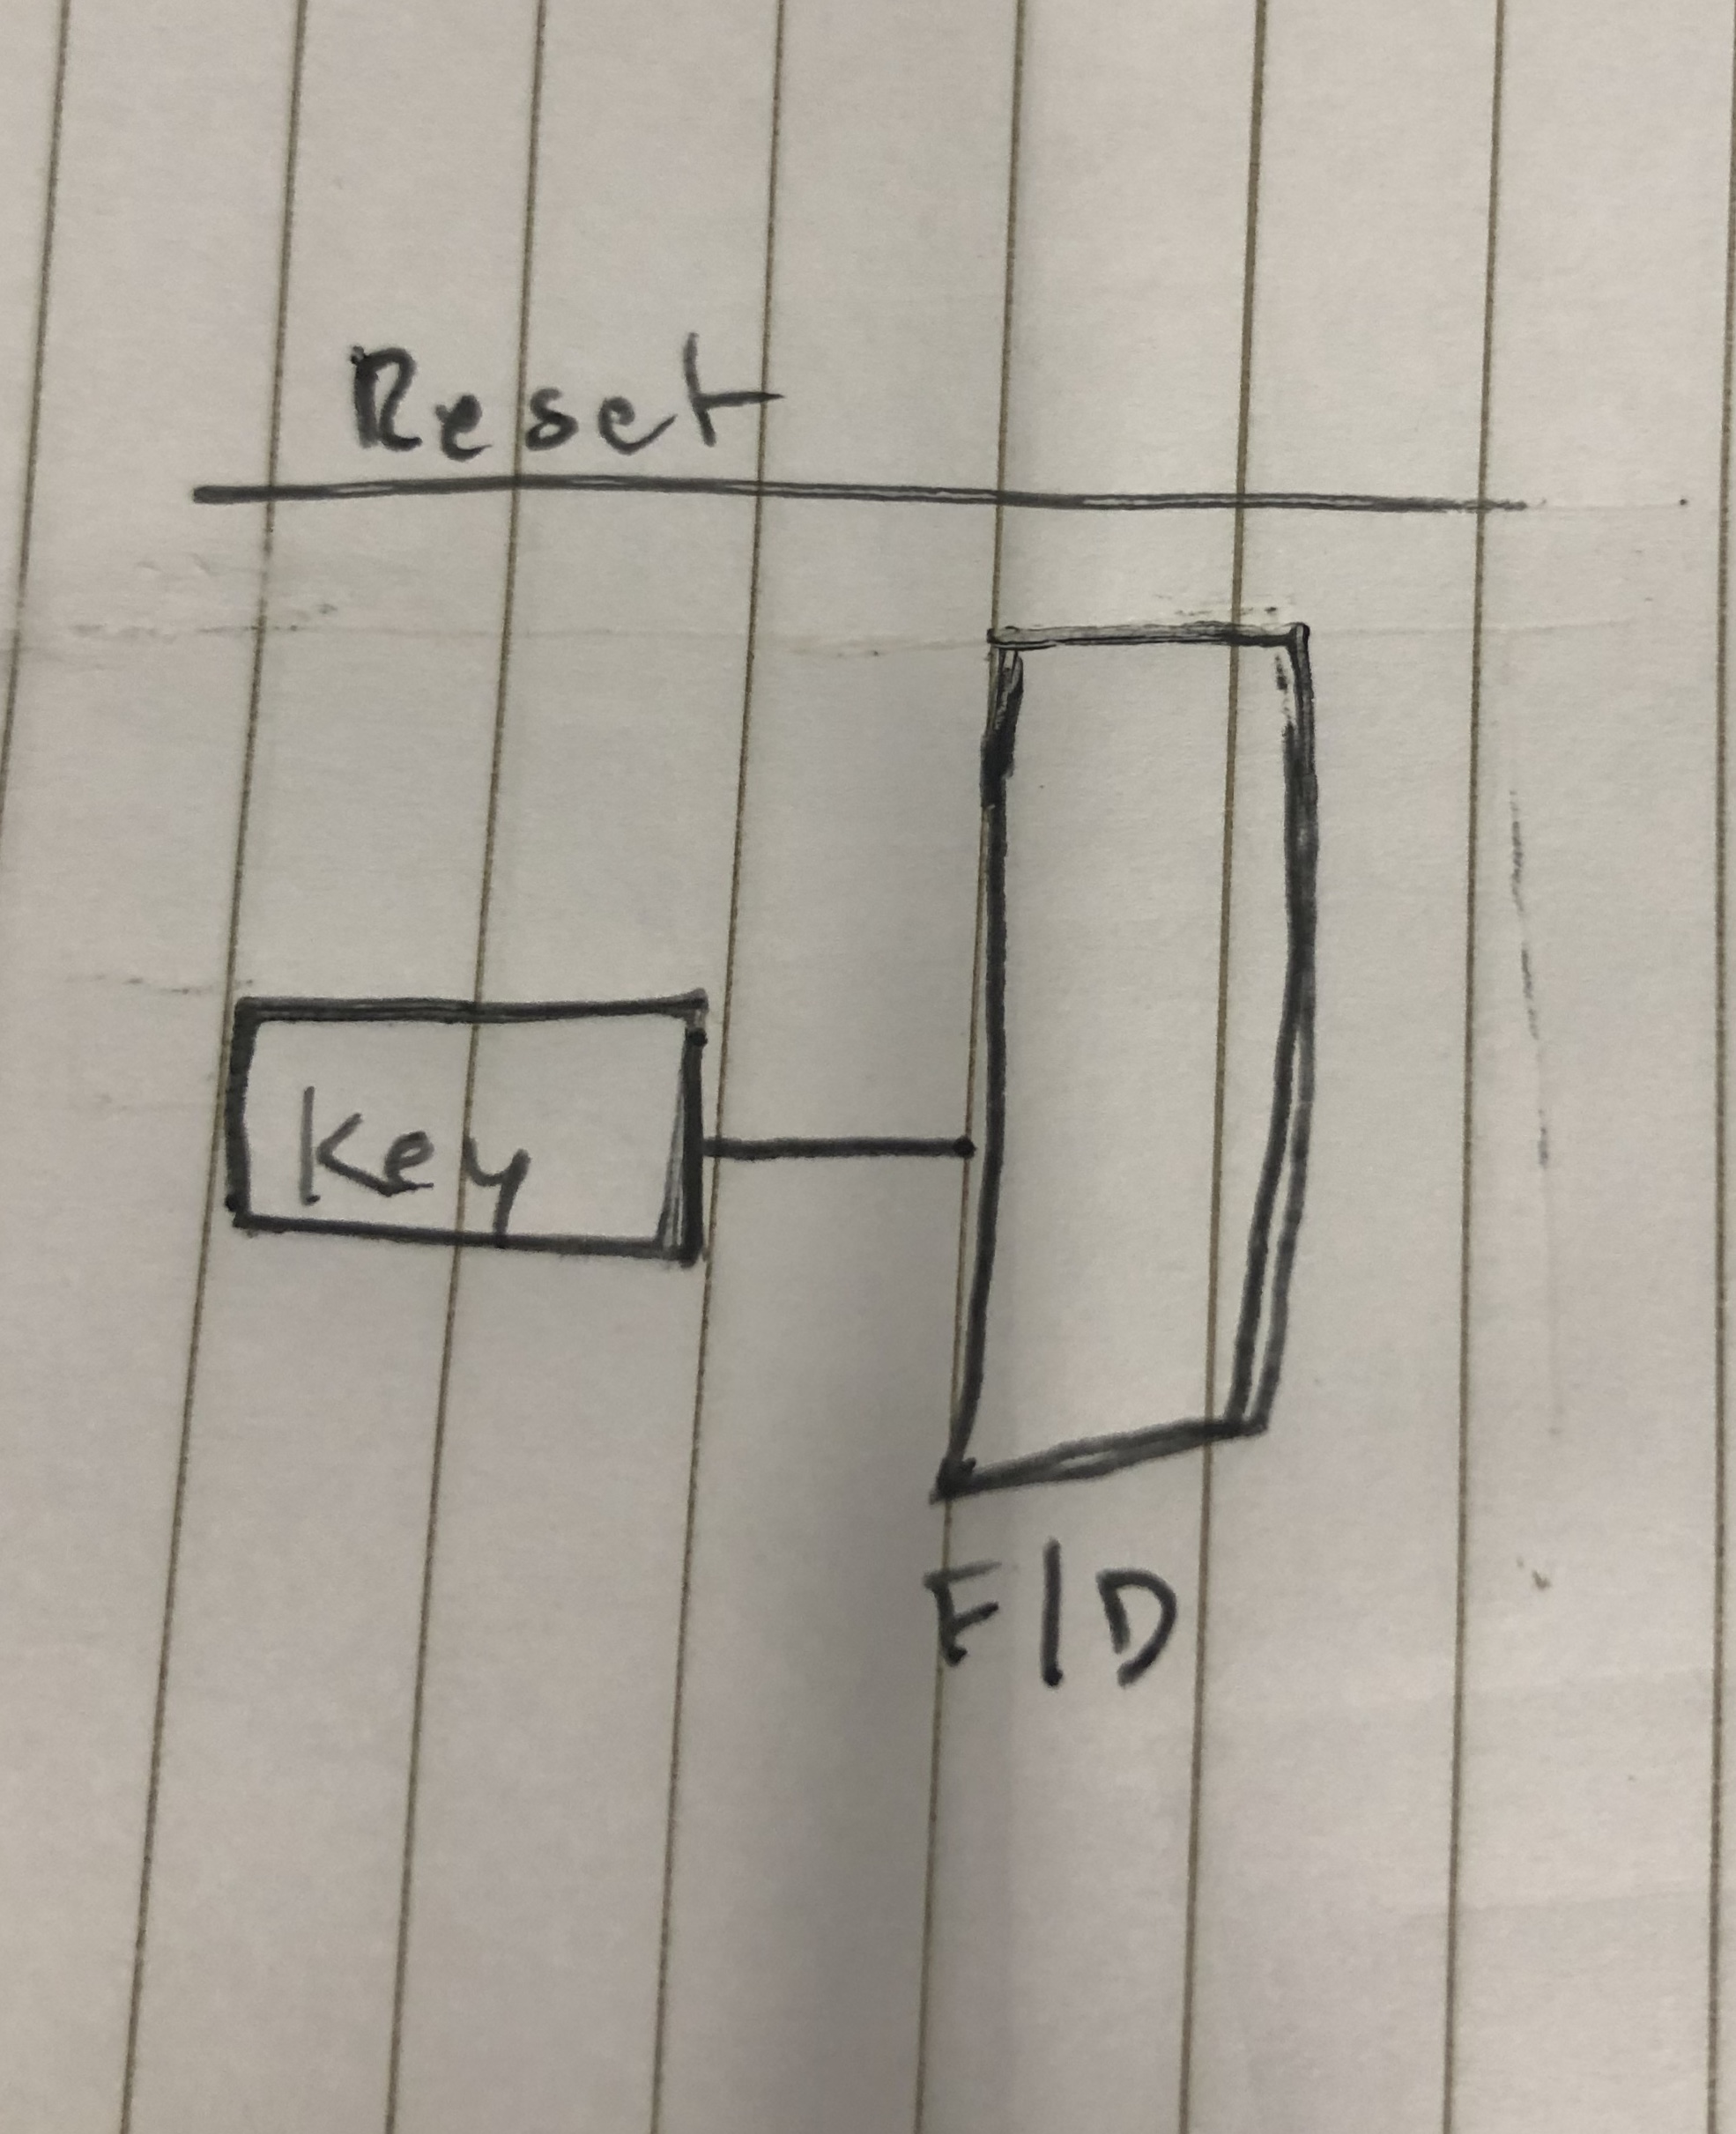 Reset
Key
E/D